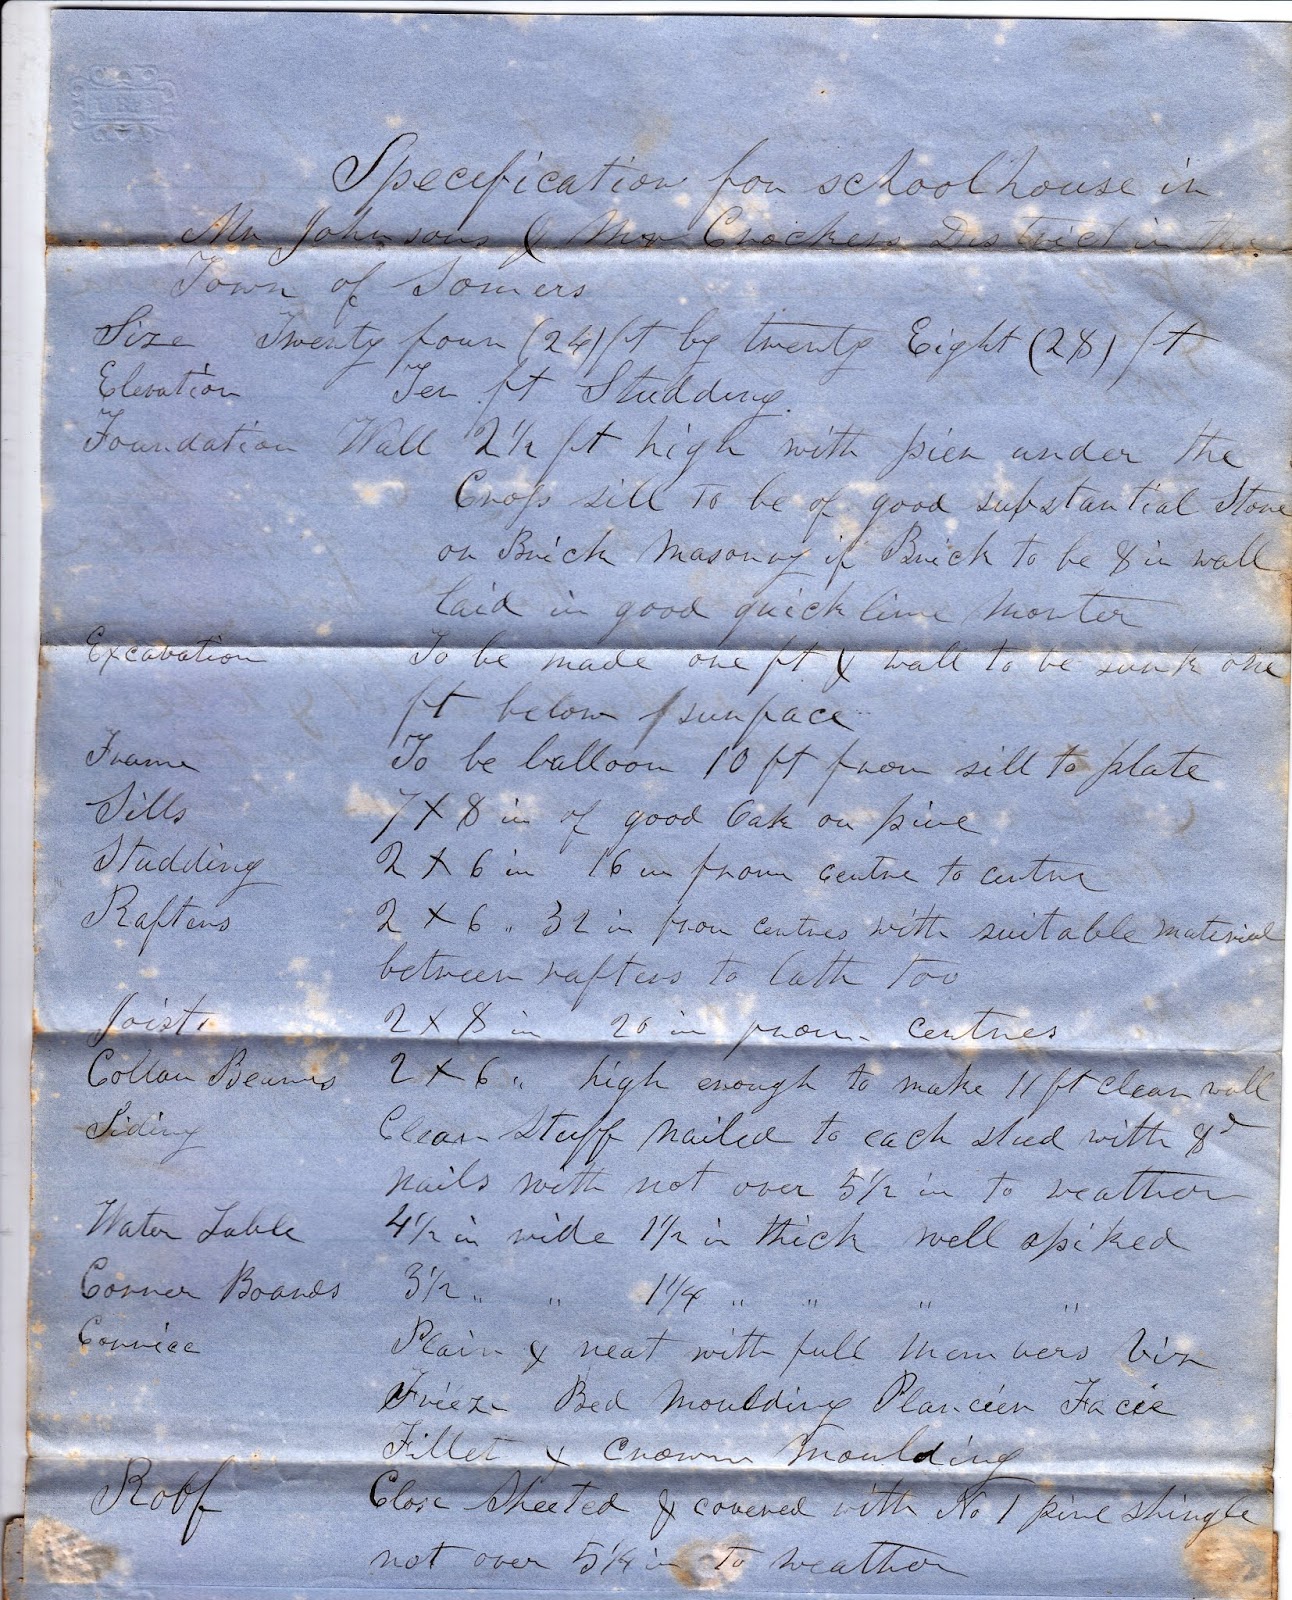 Specification for schoolhouse in
Mr Johnsons & Mr Crockers District in the
Town of Somers
Size Twenty four (24) ft by twenty Eight (28) ft
Elevation Ten ft Studding
Foundation Wall 2 1/2 ft high with pier under the
Cross sill to be of good substantial Stone
or Brick Masonry if Brick to be 8 in wall
laid in good quick lime Morter
Excavation To be made one ft & wall to be sunk one
ft below surface
Frame To be balloon 10 ft from sill to plate
Sills 7 X 8 in of good Oak or pine
Studding 2 X 6 in 16 in from centre to centre
Rafters 2 X 6 " 32 in from centres with suitable material
between rafters to lath too
Joist 2 X 8 in 20 in from centres
Collar Beams 2 X 6 " high enough to make 11 ft clear wall
Siding Clear Stuff Nailed to each stud with 8d
nails with not over 5 1/2 in to weather
Water Table 4 1/2 in wide 1 1/2 in thick well spiked
Corner Boards 3 1/2 " " 1 1/4 " " " "
Cornice Plain & neat with full Members Viz
Frieze Bed Moulding Plancien Facie
Fillet & Crown Moulding
Roof Close Sheeted & covered with No 1 pine shingle
not over 5 1/4 in to weather